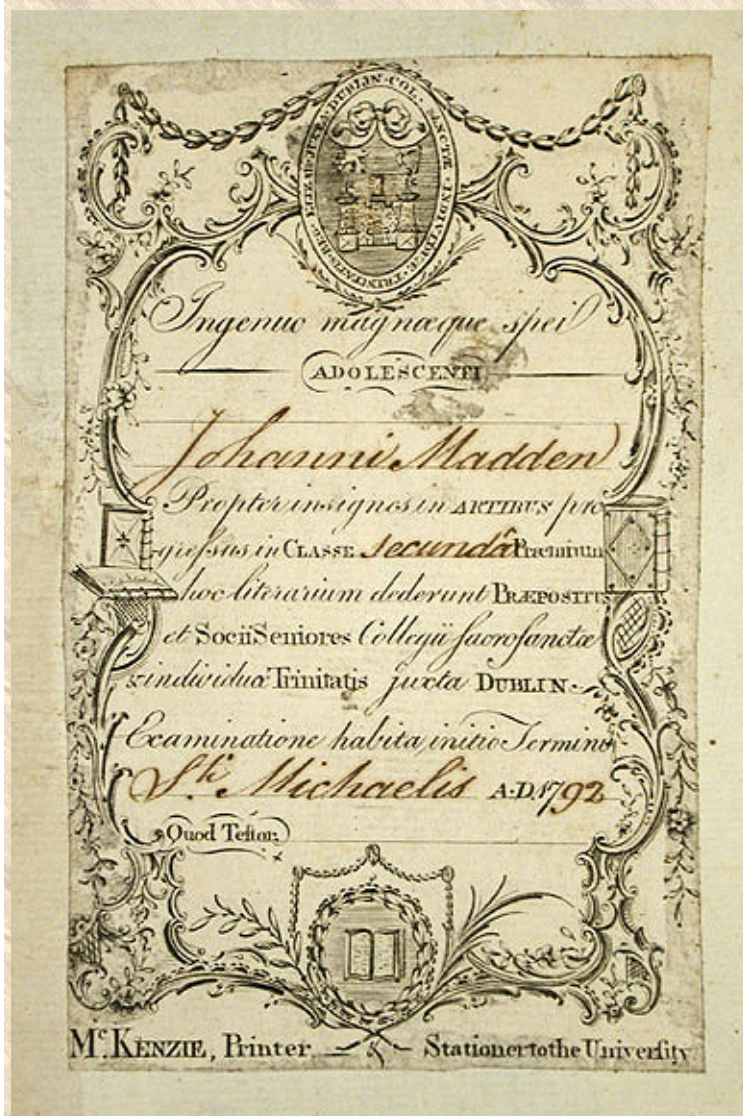 COL · SANCTÆ · ET · INDIVIDUÆ · TRINITATIS · REG · ELIZAB · JUXTA · DUBLIN ·
Ingenuo magnæque spei
ADOLESCENTI
Johanni Madden
Propter insignes in ARTIBUS pro
greſsus in CLASSE secundâ Præmium
hoc literarium dederunt PRÆPOSITUS
et Socii Seniores Collegii ſacroſanctæ
& individuæ Trinitatis juxta DUBLIN.
Examinatione habita initio Termini
Sti. Michaelis A.D. 1792
Quod Teſtor,
Mc. KENZIE, Printer & Stationer to the Univerſity